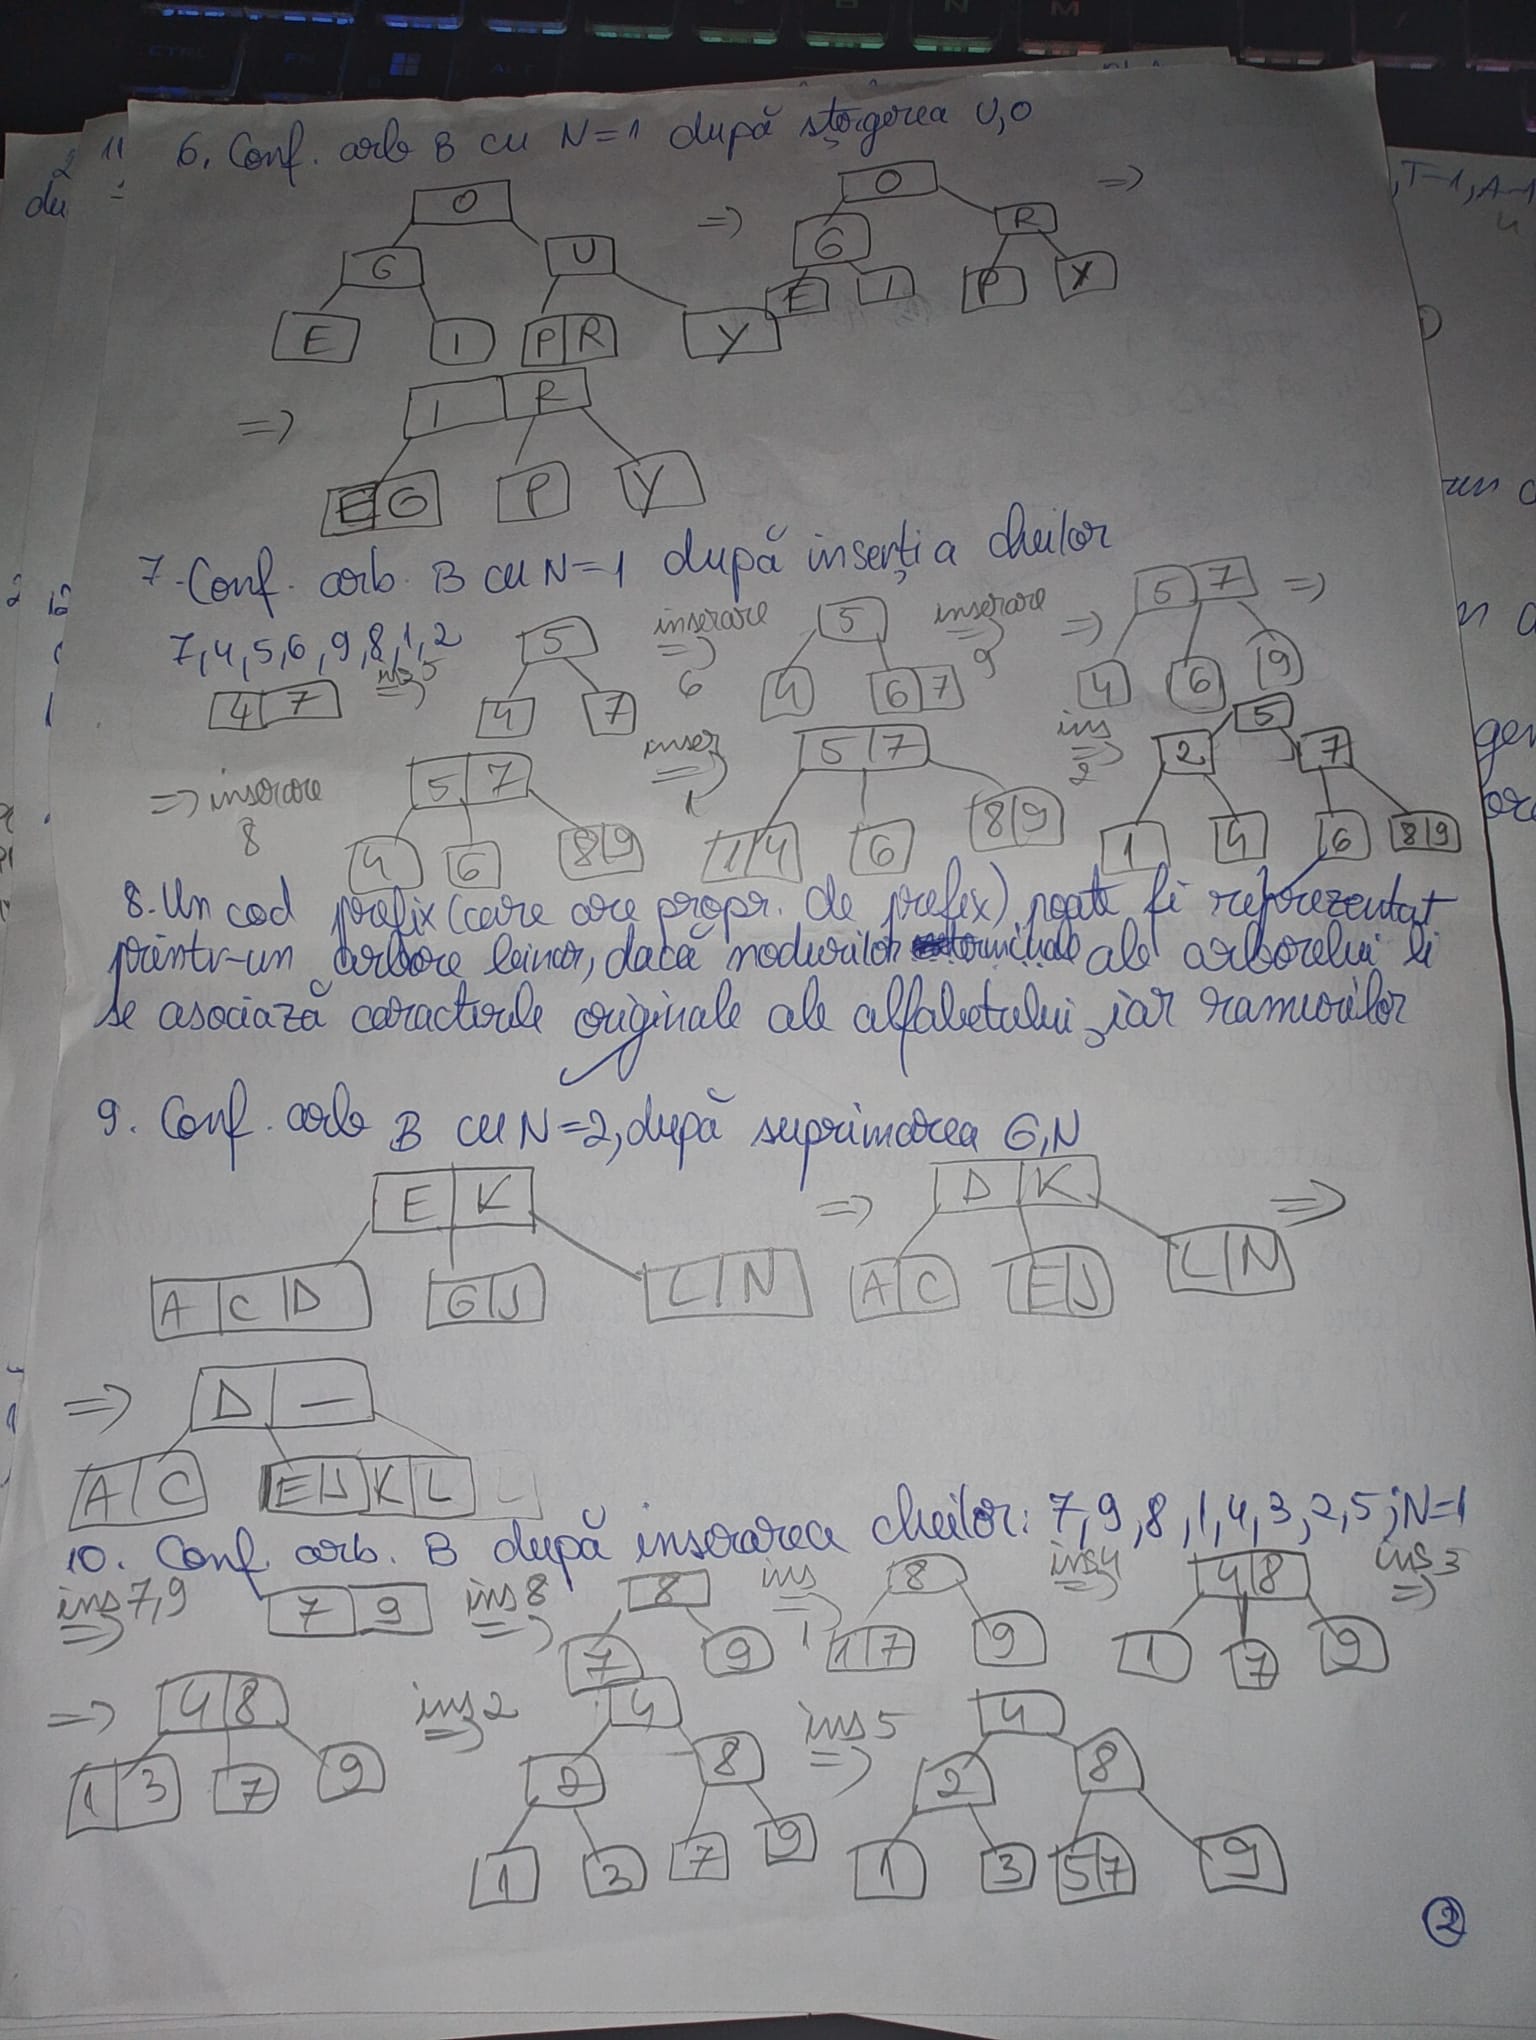 6. Conf. arb B cu N=1 după ștergerea U,O
O => O =>
G U G R
E I P R Y E I P Y
=> I R
E G P Y
7. Conf. arb. B cu N=1 după inserția cheilor
7,4,5,6,9,8,1,2
4 7 ins 5 => 5 inserare => 6 5 inserare => 9 => 5 7 =>
4 7 4 6 7 4 6 9
=> inserare 8 5 7 inser => 1 5 7 ins => 2 5
2 7
4 6 8 9 1 4 6 8 9 1 4 6 8 9
8. Un cod prefix (care are propr. de prefix) poate fi reprezentat
printr-un arbore binar, dacă nodurilor terminale ale arborelui li
se asociază caracterele originale ale alfabetului, iar ramurilor
9. Conf. arb B cu N=2, după suprimarea G,N
E K => D K =>
A C D G J L N A C E J L N
=> D —
A C E J K L
10. Conf. arb. B după inserarea cheilor: 7,9,8,1,4,3,2,5; N=1
ins 7,9 => 7 9 ins 8 => 8 ins => 1 8 ins 4 => 4 8 ins 3 =>
7 9 1 7 9 1 7 9
=> 4 8 ins 2 => 4 ins 5 => 4
1 3 7 9 2 8 2 8
1 3 7 9 1 3 5 7 9
2